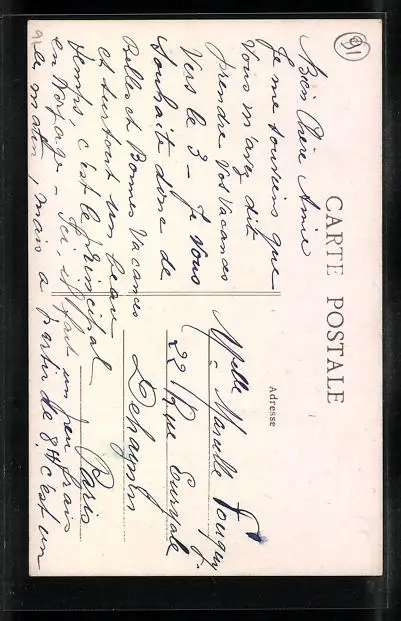 CARTE POSTALE
Adresse
91
Bien Chère Amie
Je me souviens que
vous m'avez dit
prendre vos vacances
vers le 3 - Je vous
souhaite donc de
Belles et Bonnes Vacances
et surtout un beau
temps, c'est le principal
en voyage - Ici, il fait un peu frais
le matin, mais à partir de 8H c'est un
Melle Marcelle
22 Rue Euryale
Dehaynin
Paris